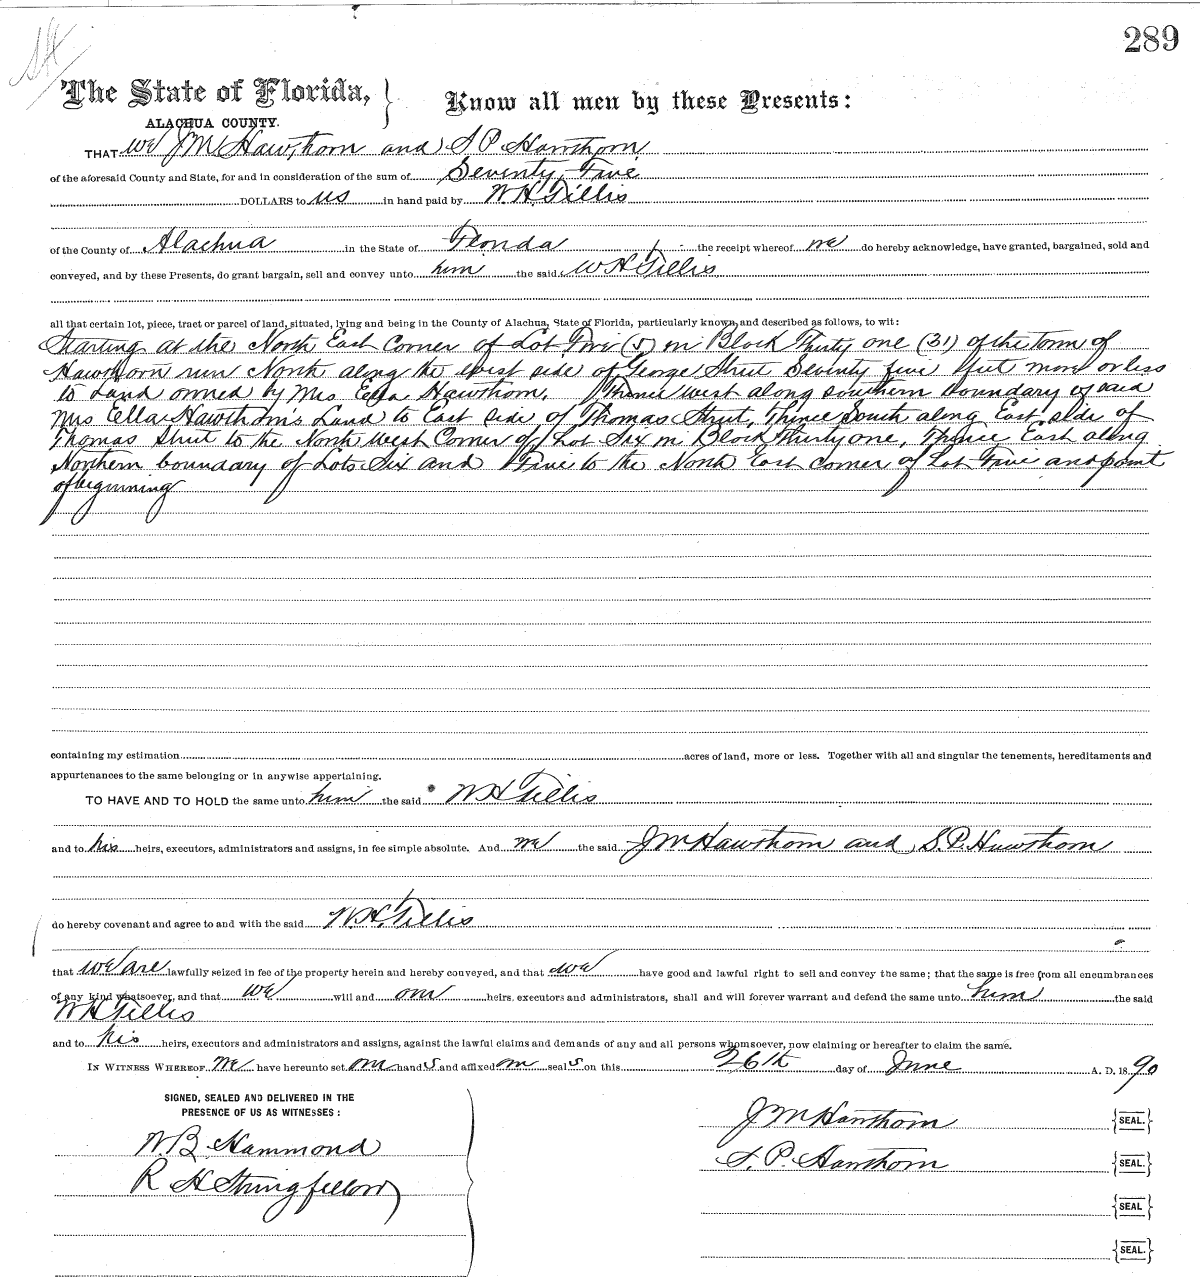 289
The State of Florida, } Know all men by these Presents:
ALACHUA COUNTY.
THAT we J M Hawthorn and S P Hawthorn
of the aforesaid County and State, for and in consideration of the sum of Seventy Five
DOLLARS to us in hand paid by W. H. Tillis
of the County of Alachua in the State of Florida the receipt whereof we do hereby acknowledge, have granted, bargained, sold and
conveyed, and by these Presents, do grant bargain, sell and convey unto him the said W H Tillis
all that certain lot, piece, tract or parcel of land, situated, lying and being in the County of Alachua, State of Florida, particularly known and described as follows, to wit:
Starting at the North East Corner of Lot Five (5) in Block Thirty one (31) of the town of
Hawthorn run North along the west side of George Street Seventy five feet more or less
to Land owned by Mrs Ella Hawthorn, Thence west along southern boundary of said
Mrs Ella Hawthorn's Land to East side of Thomas Street, Thence South along East side of
Thomas Street to the North West Corner of Lot Six in Block Thirty one, Thence East along
Northern boundary of Lots Six and Five to the North East corner of Lot Five and point
of beginning
containing my estimation acres of land, more or less. Together with all and singular the tenements, hereditaments and
appurtenances to the same belonging or in anywise appertaining.
TO HAVE AND TO HOLD the same unto him the said W H Tillis
and to his heirs, executors, administrators and assigns, in fee simple absolute. And we the said J M Hawthorn and S. P. Hawthorn
do hereby covenant and agree to and with the said W. H. Tillis
that we are lawfully seized in fee of the property herein and hereby conveyed, and that we have good and lawful right to sell and convey the same; that the same is free from all encumbrances
of any kind whatsoever, and that we will and our heirs, executors and administrators, shall and will forever warrant and defend the same unto him the said
W H Tillis
and to his heirs, executors and administrators and assigns, against the lawful claims and demands of any and all persons whomsoever, now claiming or hereafter to claim the same.
IN WITNESS WHEREOF we have hereunto set our hands and affixed our seals on this 26th day of June A. D. 1890
SIGNED, SEALED AND DELIVERED IN THE
PRESENCE OF US AS WITNESSES:
J M Hawthorn {SEAL.}
W. B. Hammond
S. P. Hawthorn {SEAL.}
R H Stringfellow
{SEAL}
{SEAL.}